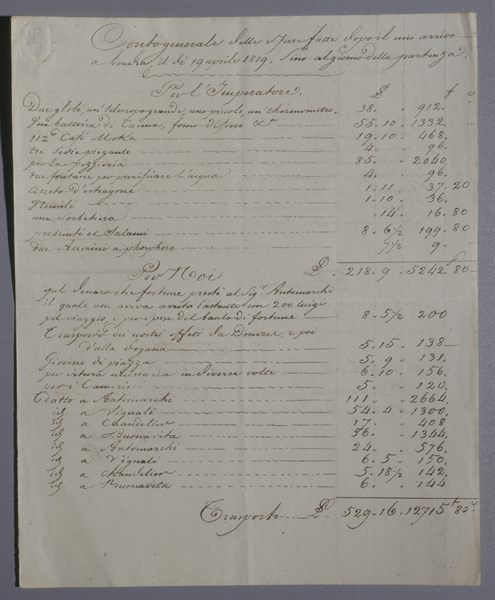 Conto generale delle spese fatte dopo il mio arrivo
a Londra, il dì 19 aprile 1819, sino al giorno della partenza.
Per l'Imperatore. £ f
Due globi, un telescopo grande, uno picolo, un thermometro. 38. - 912. -
Una batteria di Cucina, forno di ferro &c 55.10 - 1332. -
112 Caffè Motka 19.10 - 468.
tre Sedie piegante 4. - 96.
per la 85. - 2040.
due fontane per purifiare l'acqua 4. - 96.
Aceto d'estragone 1.11 37.20
1.10 - 36.
una Sorbetiera .14 16.80
presciutti et Salami 8.6½ 199.80
due a phosphoro 7½ 9 -
Per Noi £. 218.9 - 5242 80
quel denaro che fortune presti al Sigr. Antomarchi
il quale non aveva avuto bastante con 200 luigi
pel viaggio, e per pese del baulo di fortune 8.5½ 200
Trasporto dei nostri effetti da Douvre, e poi
dalla Dogana 5.15 - 138 -
Giovine di piazza 5.9 - 131.
per vitura necessaria in diverse volte 6.10 - 156.
per i Camerieri 5. - 120.
dato a Antomarchi 111 - 2664.
id a Vignali 54.4 - 1300.
id a Chandelier 17. - 408
id a Buonavita 56. - 1344.
id a Antomarchi 24. - 576.
id a Vignali 6.5 - 150.
id a Chandelier 5.18½ 142.
id a Buonavita 6. - 144
Trasporto £. 529.16.12715 f 80 c